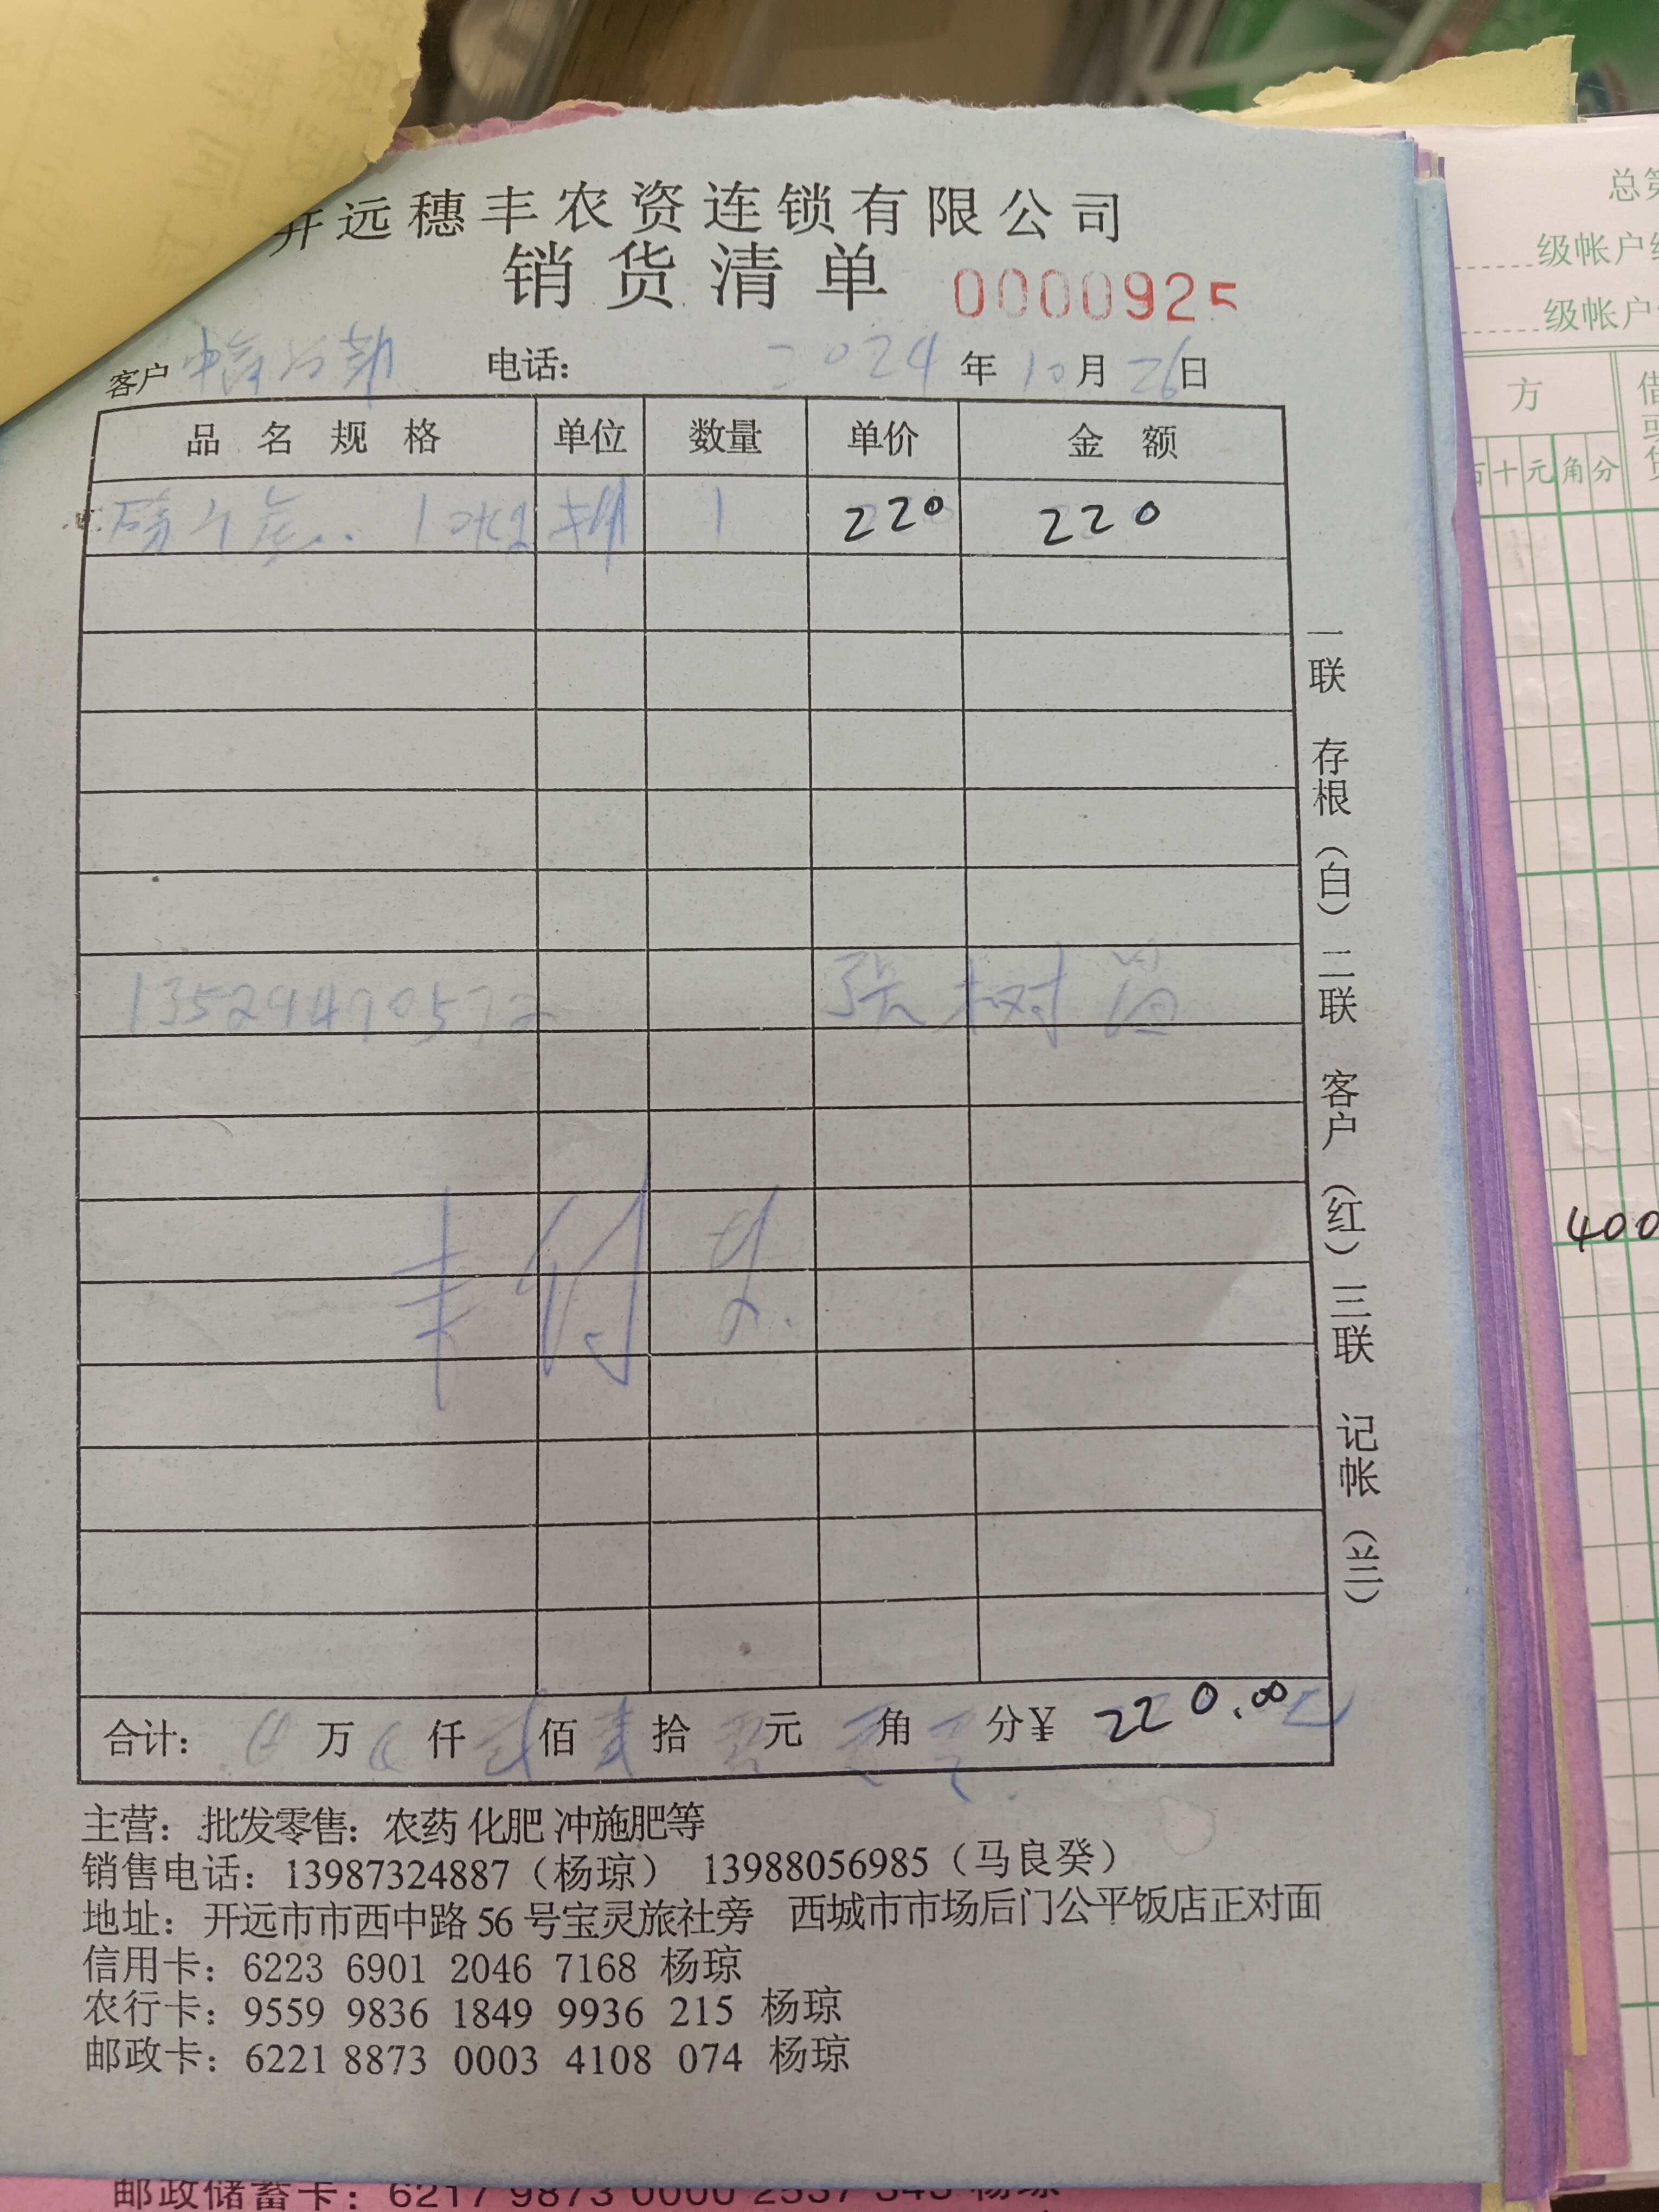 开远穗丰农资连锁有限公司
销货清单 0000925
客户 电话： 2024年10月26日
品名规格 单位 数量 单价 金额
1 220 220
13529490572 张树
未付
合计： 万 仟 贰佰 拾 元 角 分¥ 220.00
一联 存根（白）二联 客户（红）三联 记帐（兰）
主营：批发零售：农药 化肥 冲施肥等
销售电话：13987324887（杨琼） 13988056985（马良癸）
地址：开远市市西中路56号宝灵旅社旁 西城市市场后门公平饭店正对面
信用卡：6223 6901 2046 7168 杨琼
农行卡：9559 9836 1849 9936 215 杨琼
邮政卡：6221 8873 0003 4108 074 杨琼
邮政储蓄卡：6217 9873 0000 2537 杨琼
总第
级帐户
级帐户
方 借或贷
百十元角分
400